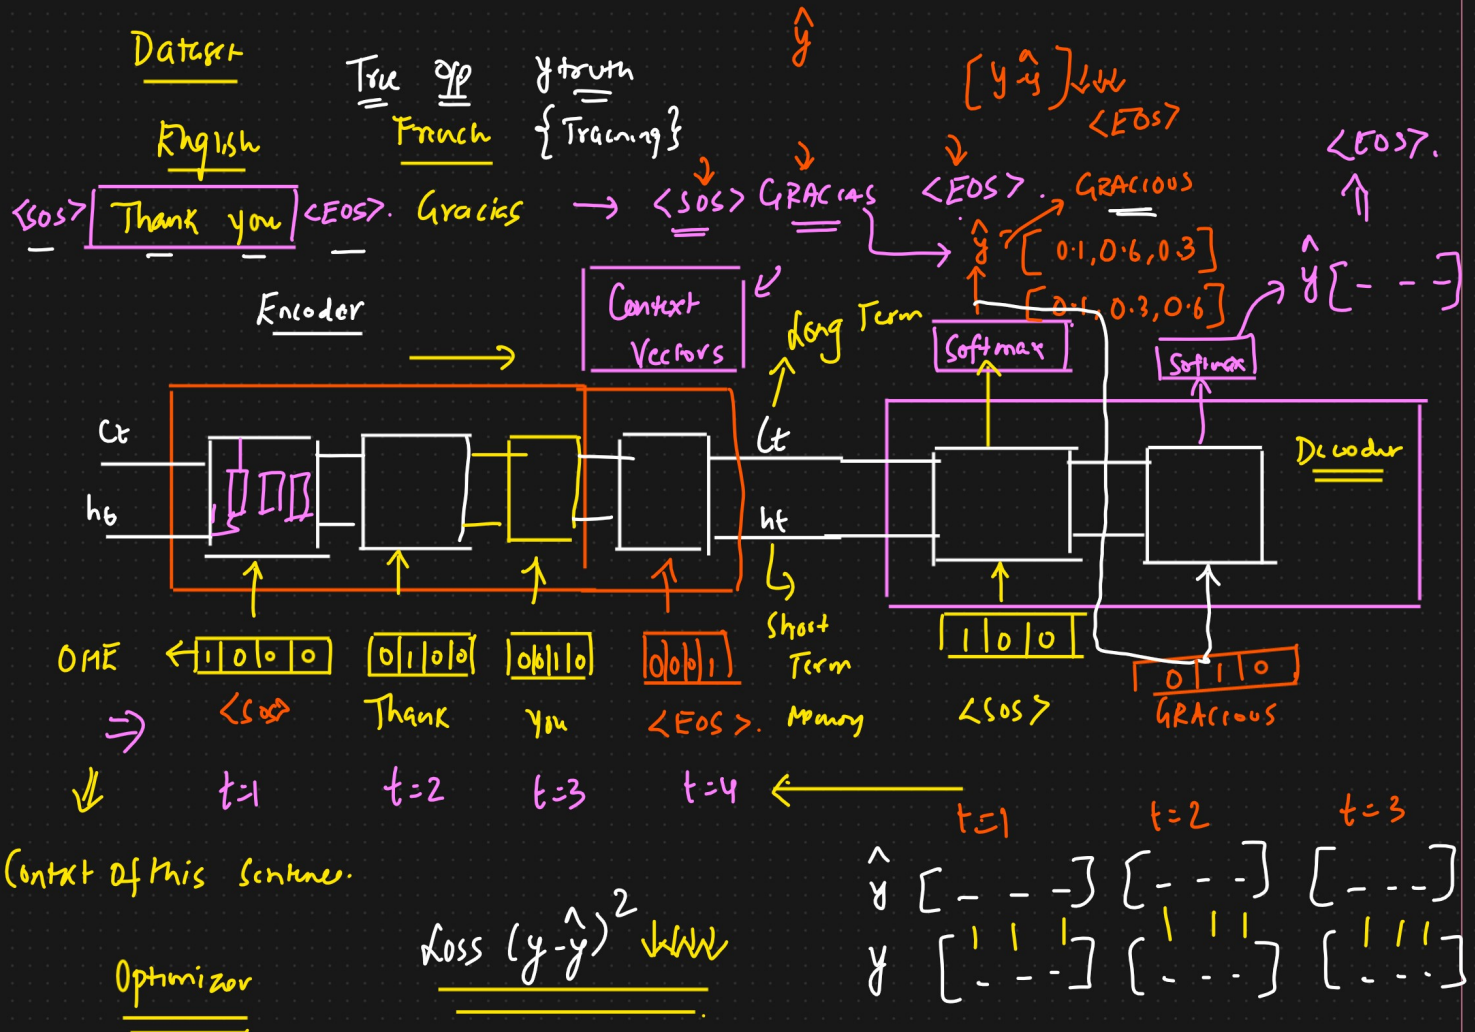 ŷ
Dataset
True O/p y truth
[y - ŷ] ↓↓↓
<EOS>
English French {Training}
<EOS>.
<SOS> Thank you <EOS>. Gracias → <SOS> GRACIAS <EOS>. GRACIOUS
ŷ [0.1, 0.6, 0.3]
ŷ [- - -]
Encoder
Context
Vectors
Long Term
[0.1, 0.3, 0.6]
Softmax
Softmax
Ct
Ct
Decoder
ht
Short
Term
Memory
OHE ← 1 0 0 0
0 1 0 0
0 0 1 0
0 0 0 1
1 0 0
0 1 0
<SOS> Thank you <EOS>. <SOS> GRACIOUS
t=1 t=2 t=3 t=4
t=1 t=2 t=3
Context Of this Sentence.
ŷ [- - -] [- - -] [- - -]
Loss (y-ŷ)²
y [- - -] [- - -] [- - -]
Optimizer